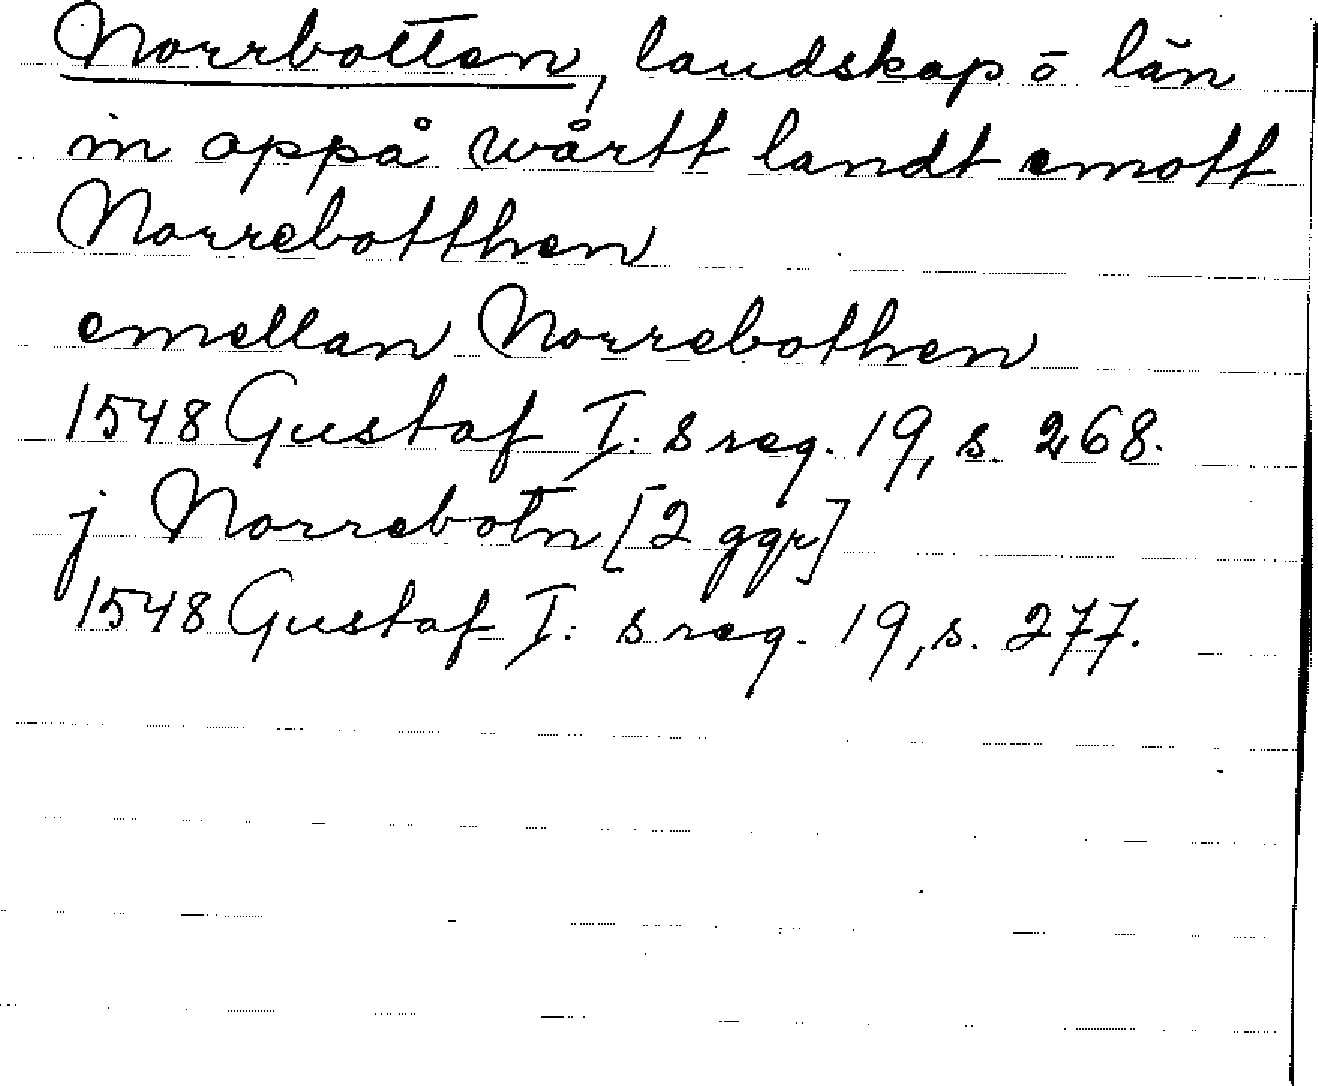 Norrbotten, landskap o län
in oppå wårtt landt emott
Norrebotthen
emellan Norrebothen
1548 Gustaf I: s reg. 19, s. 268.
j Norrebotn [2 ggr]
1548 Gustaf I: s reg. 19, s. 277.